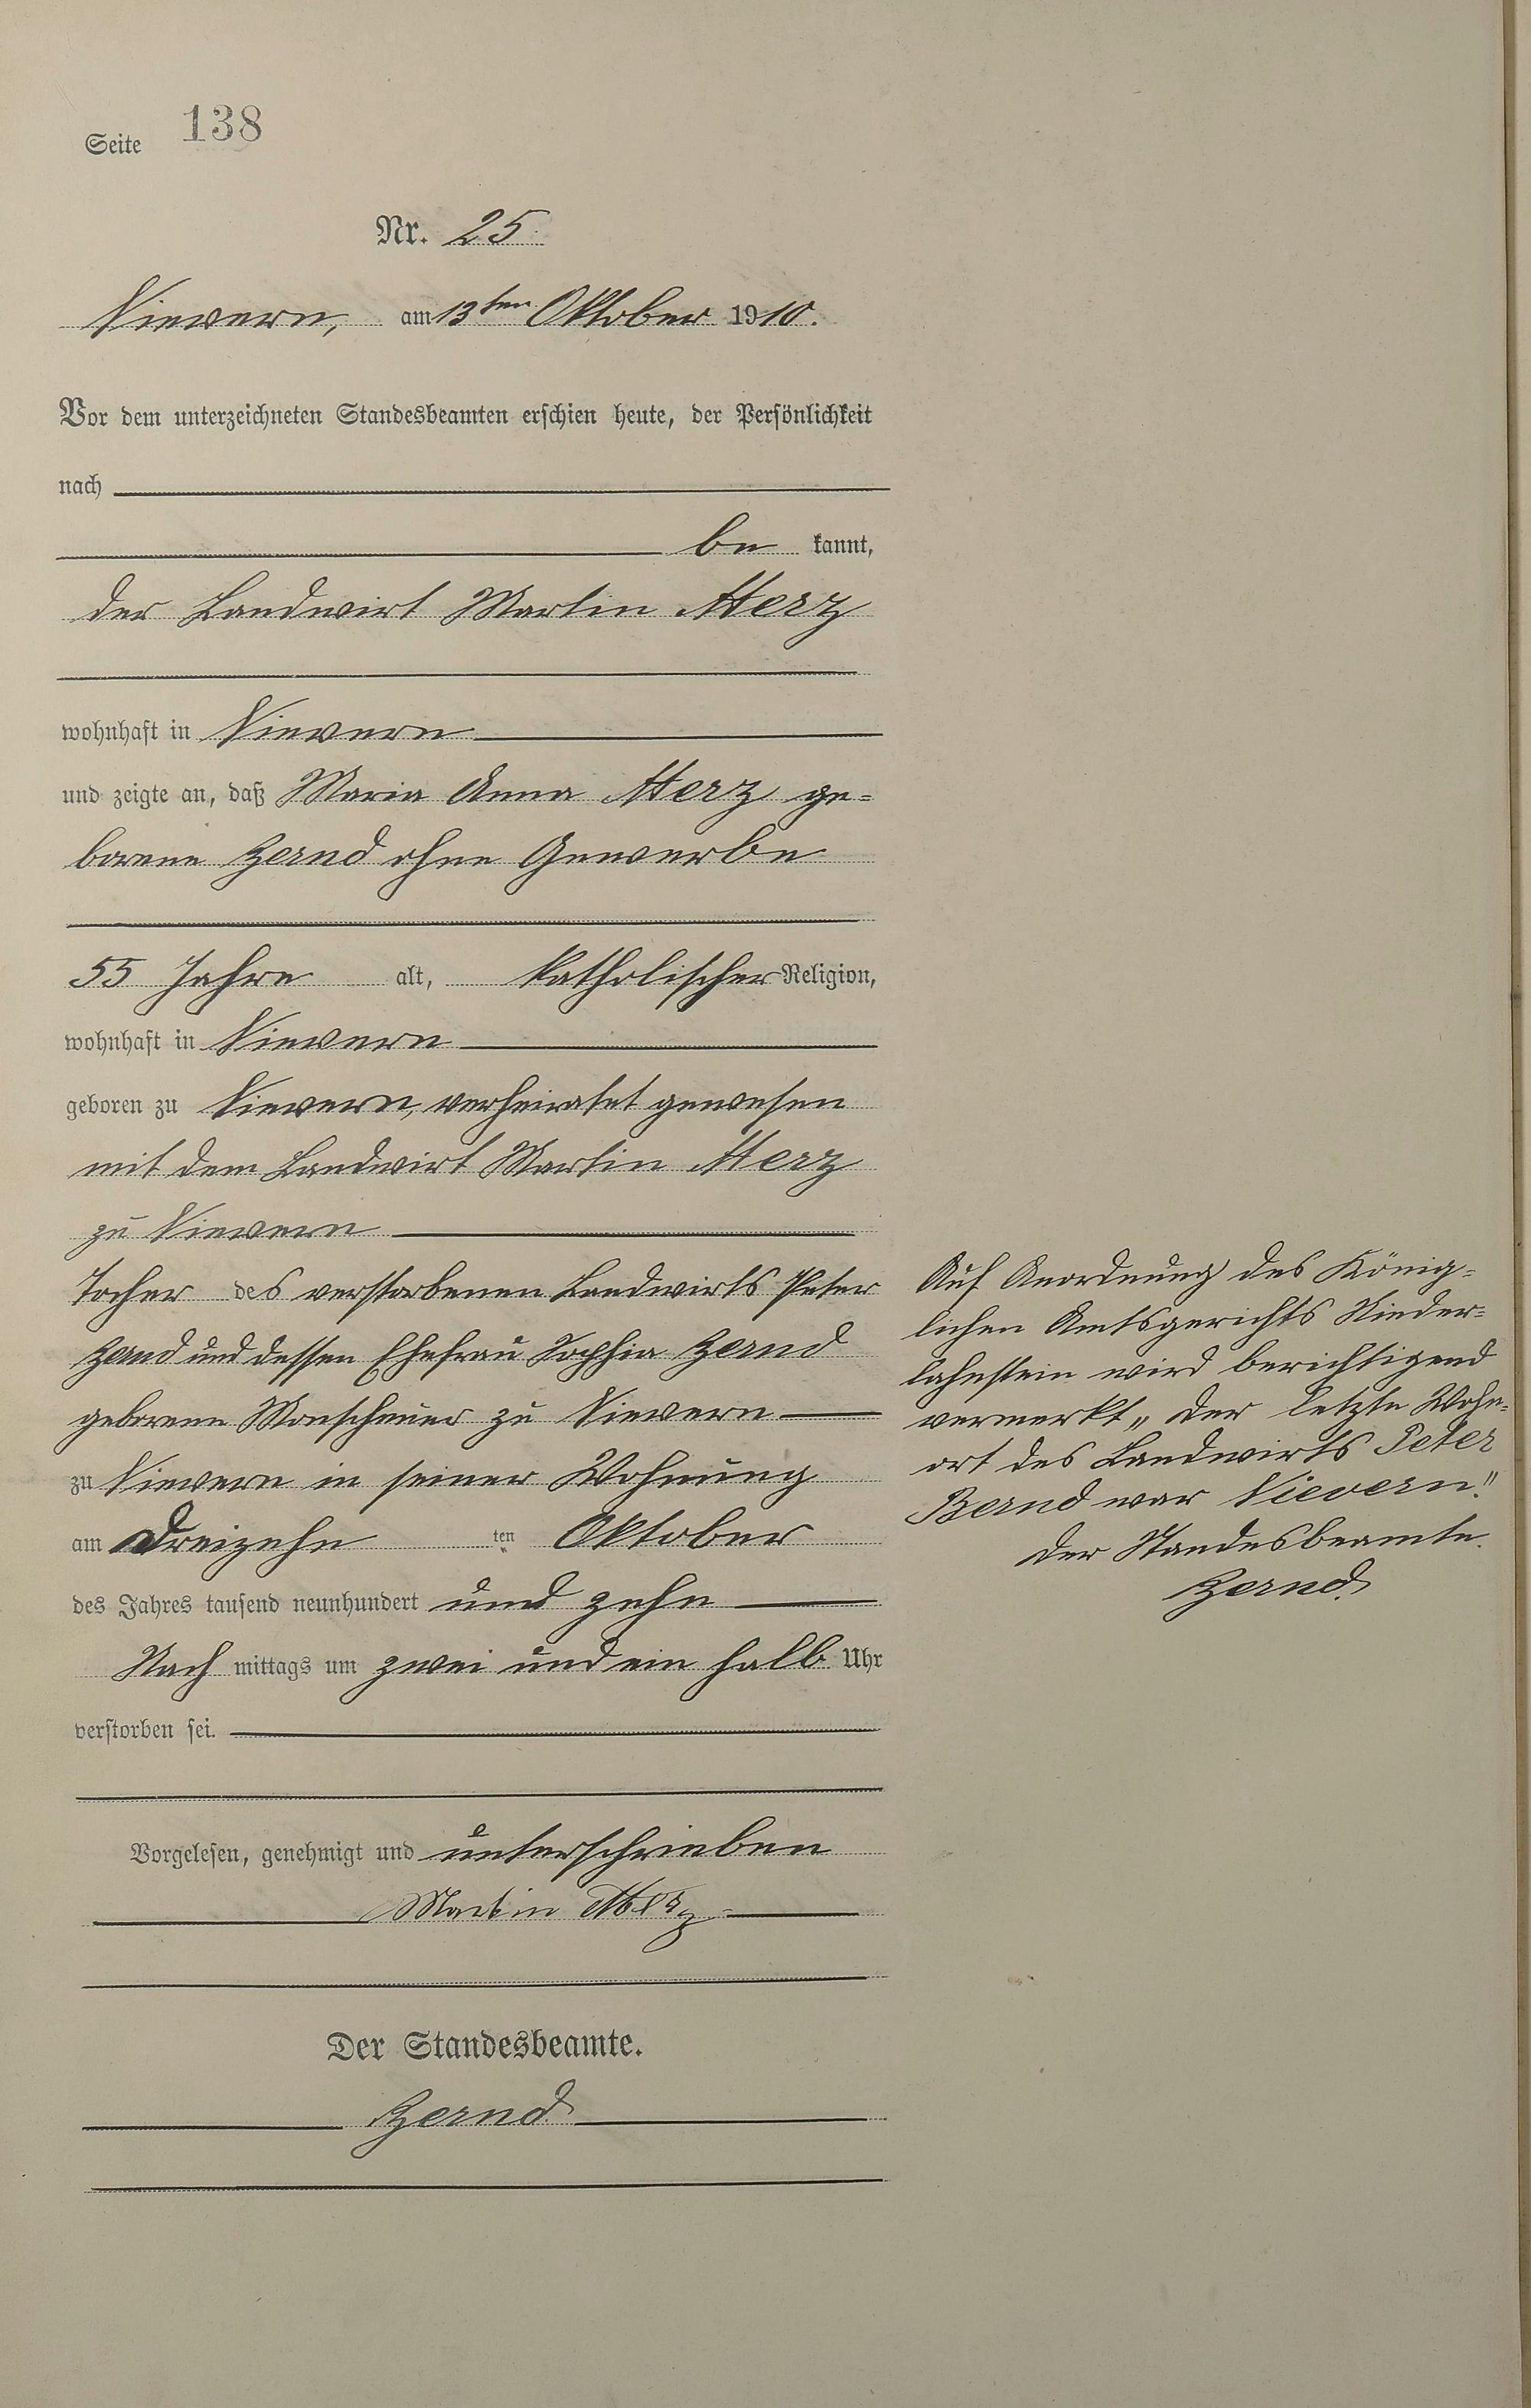 Seite 138
Nr. 25.
Nievern, am 13ten Oktober 1910.
Vor dem unterzeichneten Standesbeamten erschien heute, der Persönlichkeit
nach
be kannt,
der Landwirt Martin Herz
wohnhaft in Nievern
und zeigte an, daß Maria Anna Herz ge=
borene Bernd ohne Gewerbe
55 Jahre alt, katholischer Religion,
wohnhaft in Nievern
geboren zu Nievern, verheiratet gewesen
mit dem Landwirt Martin Herz
zu Nievern
Tocher des verstorbenen Landwirts Peter
Bernd und dessen Ehefrau Sophia Bernd
geborene Monschauer zu Nievern
zu Nievern in seiner Wohnung
am dreizehn ten Oktober
des Jahres tausend neunhundert und zehn
Nach mittags um zwei und ein halb Uhr
verstorben sei.
Vorgelesen, genehmigt und unterschrieben
Martin Herz
Der Standesbeamte.
Bernd
Auf Anordnung des König=
lichen Amtsgerichts Nieder=
lahnstein wird berichtigend
vermerkt „der letzte Wohn=
ort des Landwirts Peter
Bernd war Nievern."
Der Standesbeamte.
Bernd.